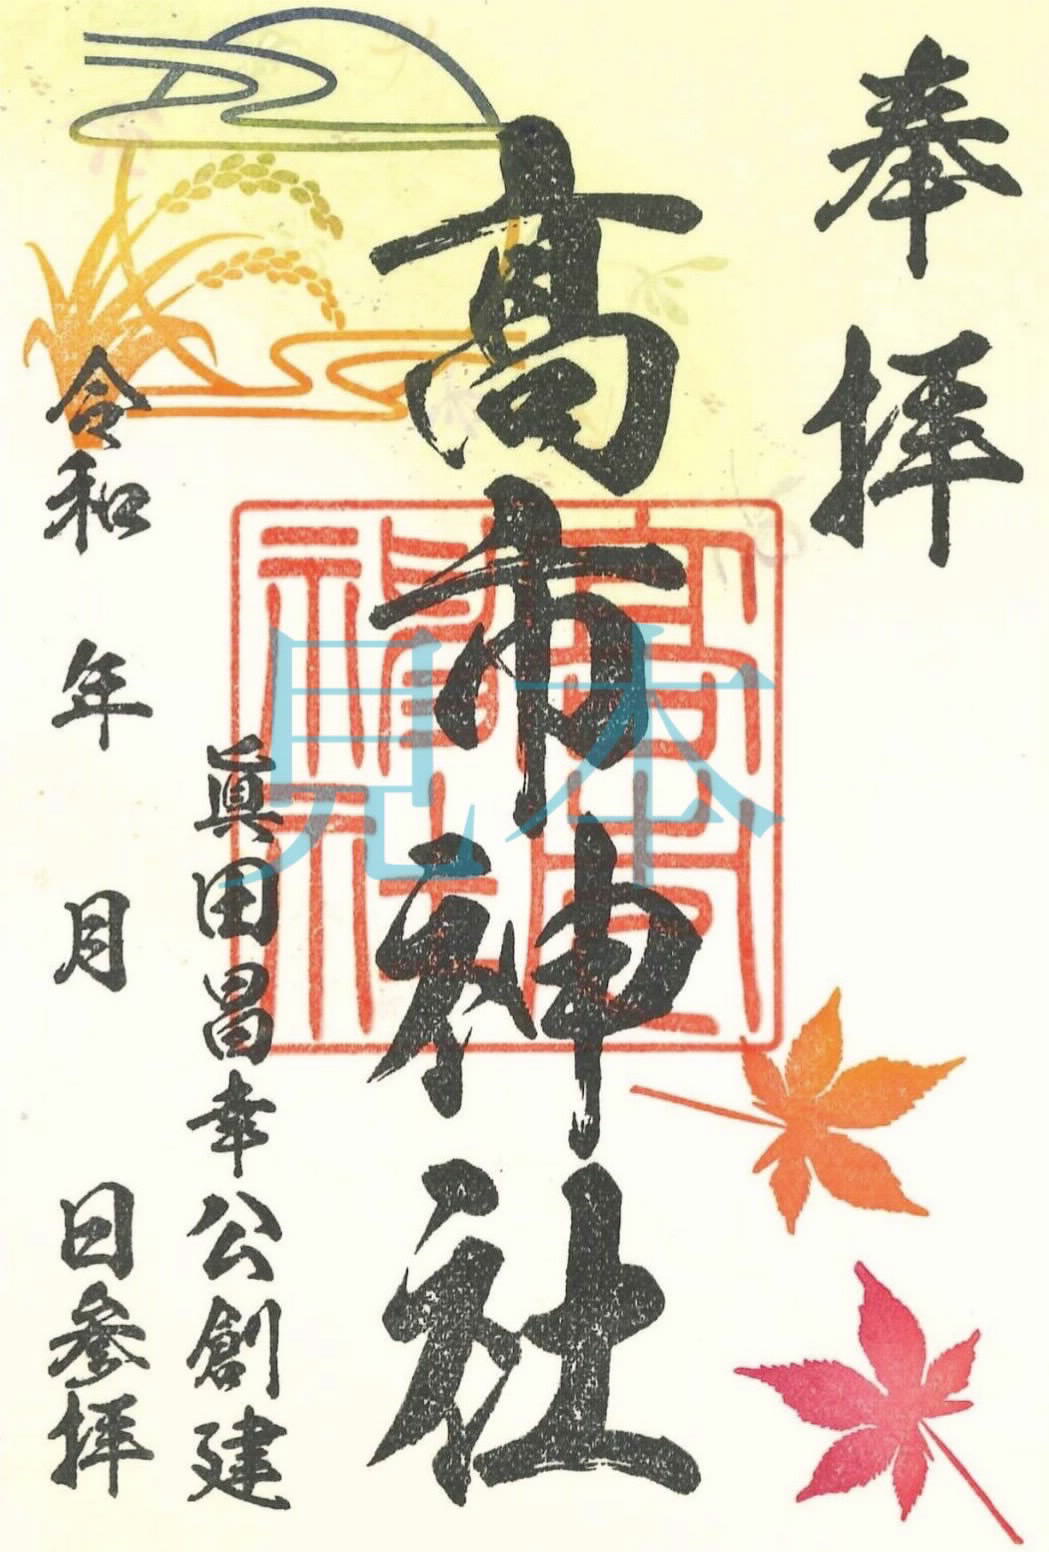 奉拝
高市神社
眞田昌幸公創建
令和 年 月 日参拝
見本